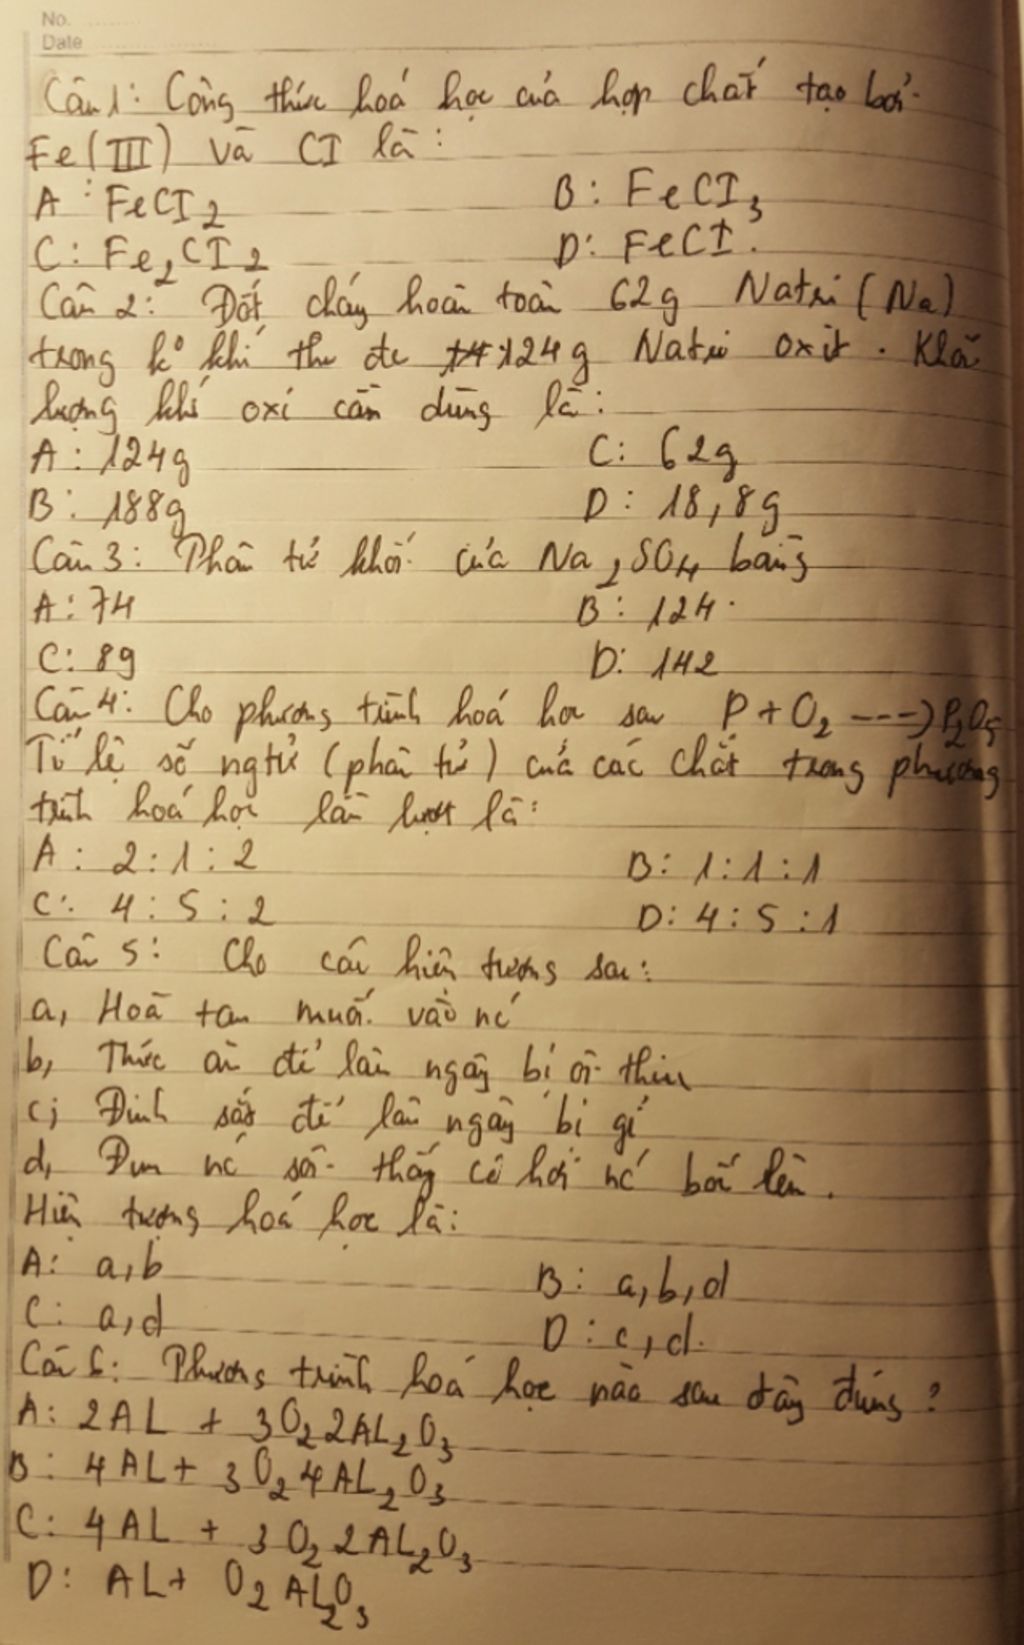 No.
Date
Câu 1: Công thức hoá học của hợp chất tạo bởi
Fe(III) và CI là:
A: FeCI2
B: FeCI3
C: Fe2CI2
D: FeCI.
Câu 2: Đốt cháy hoàn toàn 62g Natri (Na)
trong k° khí thu đc 124g Natri oxit. Khối
lượng khí oxi cần dùng là:
A: 124g
C: 62g
B: 188g
D: 18,8g
Câu 3: Phân tử khối của Na2SO4 bằng
A: 74
B: 124
C: 89
D: 142
Câu 4: Cho phương trình hoá học sau P + O2 ---> P2O5
Tỉ lệ số ngtử (phân tử) của các chất trong phương
trình hoá học lần lượt là:
A: 2:1:2
B: 1:1:1
C: 4:5:2
D: 4:5:1
Câu 5: Cho các hiện tượng sau:
a, Hoà tan muối vào nc
b, Thức ăn để lâu ngày bị ôi thiu
c, Đinh sắt để lâu ngày bị gỉ
d, Đun nc sôi thấy có hơi nc bốc lên.
Hiện tượng hoá học là:
A: a,b
B: a,b,d
C: a,d
D: c,d.
Câu 6: Phương trình hoá học nào sau đây đúng?
A: 2AL + 3O2 2AL2O3
B: 4AL + 3O2 4AL2O3
C: 4AL + 3O2 2AL2O3
D: AL + O2 AL2O3